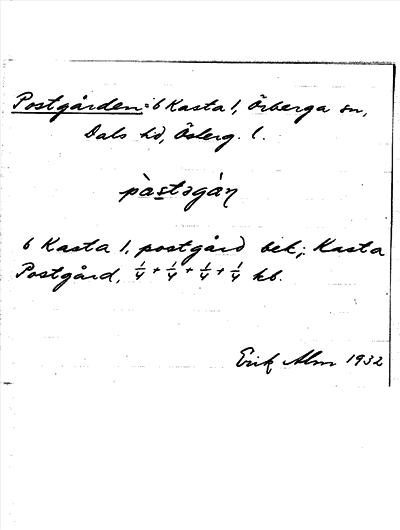 Postgården: 6 Kasta 1, Örberga sn,
Dals hd, Österg. l.
pàstəgá̀ɳ
6 Kasta 1, postgård bek; Kasta
Postgård, 1/4 + 1/4 + 1/4 + 1/4 kb.
Erik Alm 1932